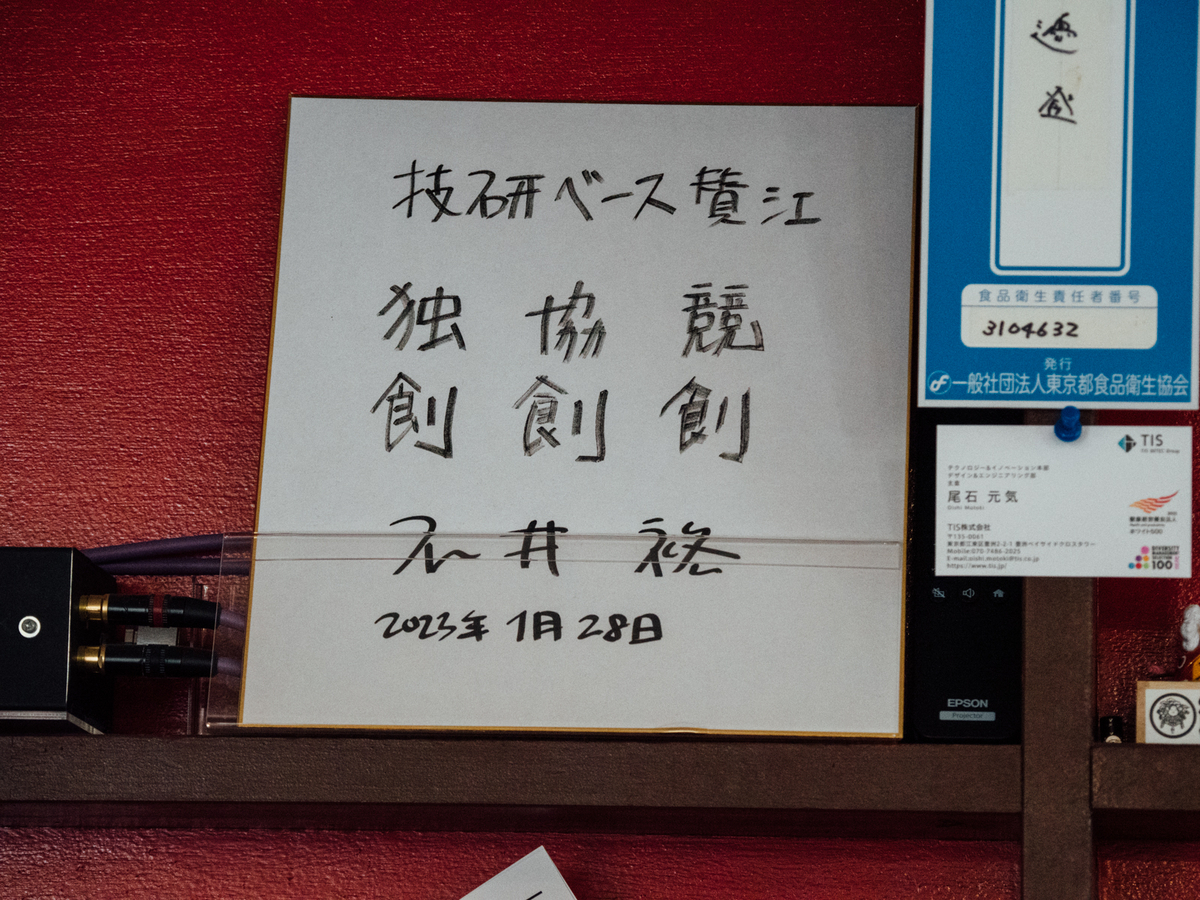 技研ベース賛江
独 協 競
創 創 創
石井 裕
2023年 1月 28日
食品衛生責任者番号
3104632
発行
一般社団法人東京都食品衛生協会
TIS
TIS INTEC Group
テクノロジー&イノベーション本部
デザイン&エンジニアリング部
主査
尾石 元気
Oishi Motoki
TIS株式会社
〒135-0061
東京都江東区豊洲2-2-1 豊洲ベイサイドクロスタワー
Mobile:070-7486-2025
E-mail:oishi.motoki@tis.co.jp
https://www.tis.jp/
健康経営優良法人
ホワイト500
DIVERSITY
MANAGEMENT
SELECTION
100
EPSON
Projector